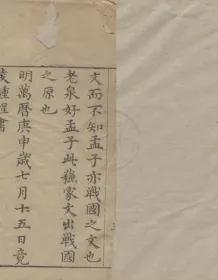 文而不知孟子亦戰國之文也
老泉好孟子此蘓家文出戰國
之原也
明萬曆庚申歳七月十五日竟
凌